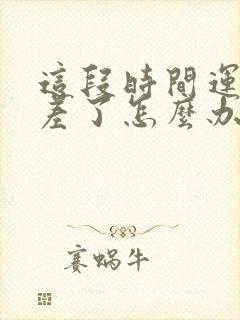 這段時間運
差了怎麼办
赛蝸牛